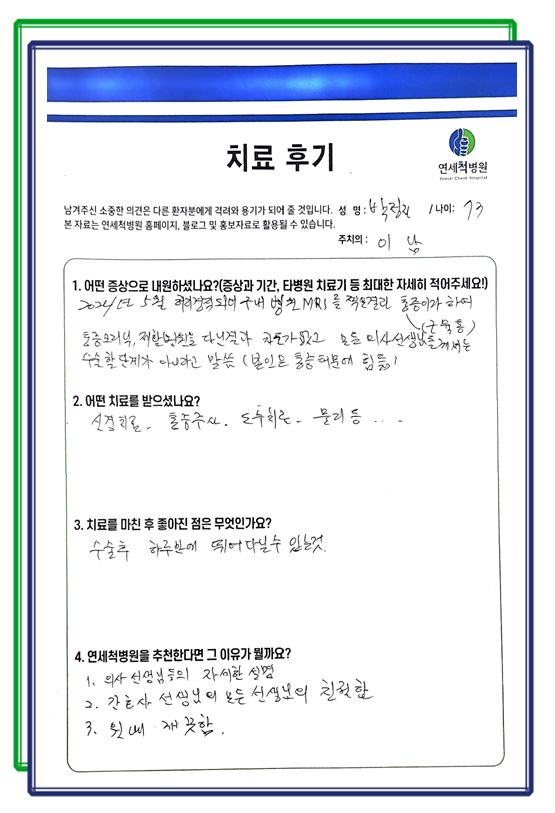 치료 후기
연세척병원
Yonsei Chuck Hospital
남겨주신 소중한 의견은 다른 환자분에게 격려와 용기가 되어 줄 것입니다. 성 명 : 박 / 나이: 73
본 자료는 연세척병원 홈페이지, 블로그 및 홍보자료로 활용될 수 있습니다.
주치의 : 이 남
1. 어떤 증상으로 내원하셨나요?(증상과 기간, 타병원 치료기 등 최대한 자세히 적어주세요!)
2024년 5월 허리 구내 병원 MRI를 찍은결과 하여
(근육통)
통증크리닉, 재활병원을 다닌결과 없고 모든 의사선생님들께서는
수술할단계가 아니라고 말씀 (본인은 통증때문에 힘듦)
2. 어떤 치료를 받으셨나요?
신경치료. 통증주사. 도수치료. 물리 등 ...
3. 치료를 마친 후 좋아진 점은 무엇인가요?
수술후 하루만에 뛰어다닐수 있는것.
4. 연세척병원을 추천한다면 그 이유가 뭘까요?
1. 의사 선생님들의 자세한 설명
2. 간호사 선생님의 모든 선생님의 친절함
3. 원내 깨끗함.